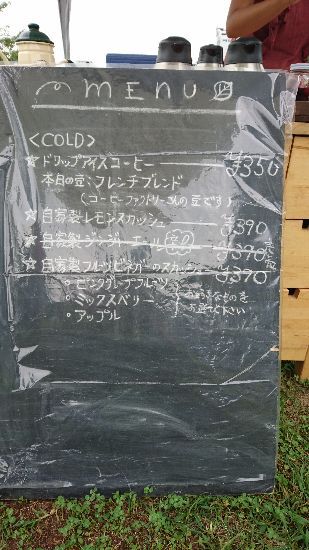 MENU
<COLD>
☆ ドリップアイスコーヒー ¥350
本日の豆:フレンチブレンド
(コーヒーファクトリーさんの豆です)
☆ 自家製レモンスカッシュ ¥390
☆ 自家製ジンジャーエール ¥390
☆ 自家製フルーツビネガーのスカッシュ ¥390
○ピンクグレープフルーツ
○ミックスベリー
○アップル
お好きなものを
お選び下さい